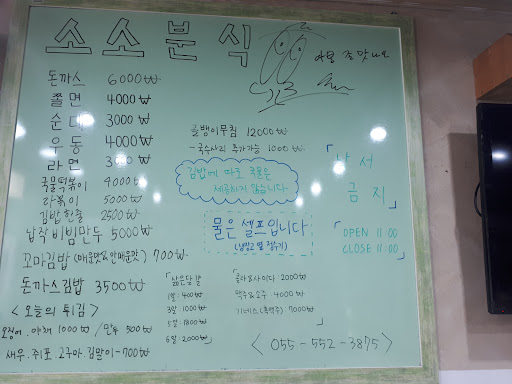 소소분식
돈까스 6000₩
쫄면 4000₩
순대 3000₩
우동 4000₩
라면 3000₩
국물떡볶이 4000₩
라볶이 5000₩
김밥한줄 2500₩
납작비빔만두 5000₩
꼬마김밥 (매운맛&안매운맛) 700₩
돈까스김밥 3500₩
<오늘의 튀김>
오징어. 야채 1000₩ / 만두 500₩
새우. 쥐포 고구마. 김말이 - 700₩
골뱅이무침 12000₩
- 국수사리 추가가능 1000₩
김밥에 따로 국물은
제공하지 않습니다
물은 셀프입니다
(냉장고 옆 정수기)
「삶은달걀
1알: 400₩
3알 1000₩
5알: 1800₩
6알: 2000₩」
「콜라&사이다 2000₩
맥주&소주 4000₩
기네스(흑맥주) 7000₩」
「낙서
금지」
「OPEN 11:00
CLOSE 11:00」
<055-552-3875>